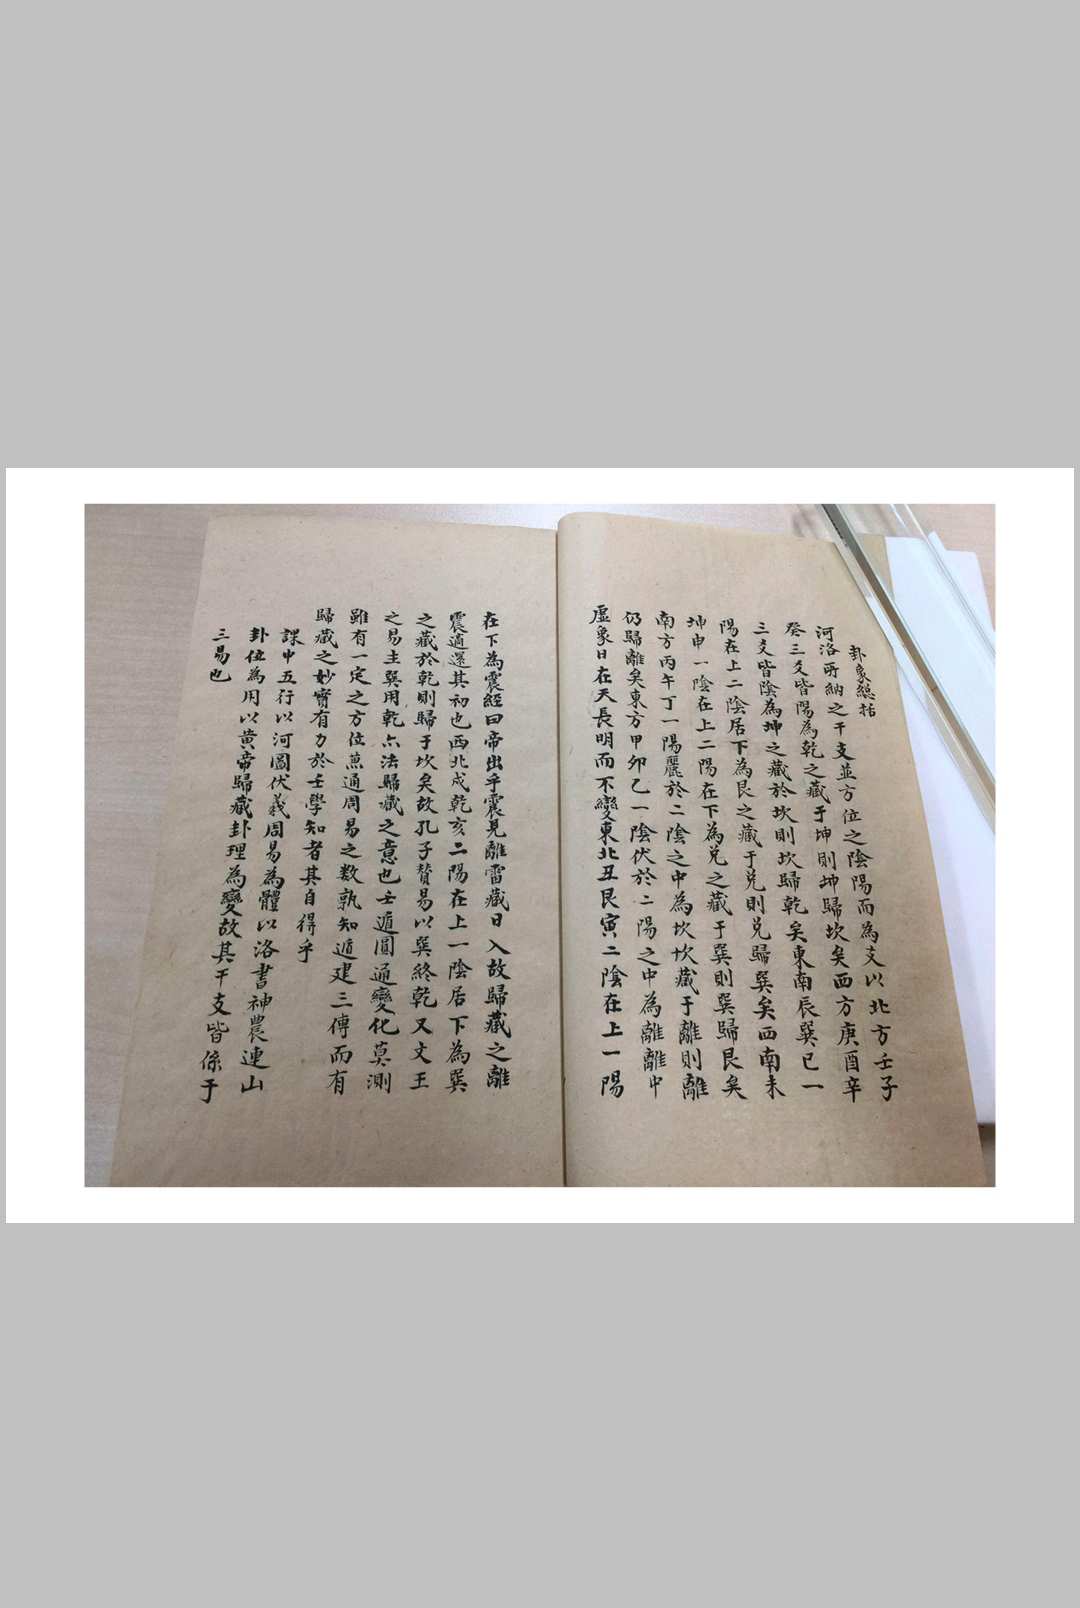 卦象總括
河洛所納之干支並方位之陰陽而為支以北方壬子
癸三爻皆陽為乾之藏于坤則坤歸坎矣西方庚酉辛
三爻皆陰為坤之藏於坎則坎歸乾矣東南辰巽巳一
陽在上二陰居下為艮之藏于兌則兌歸巽矣西南未
坤申一陰在上二陽在下為兌之藏于巽則巽歸艮矣
南方丙午丁一陽麗於二陰之中為坎坎藏于離則離
仍歸離矣東方甲卯乙一陰伏於二陽之中為離離中
虛象日在天長明而不變東北丑艮寅二陰在上一陽
在下為震經曰帝出乎震見離雷藏日入故歸藏之離
震適還其初也西北戍乾亥二陽在上一陰居下為巽
之藏於乾則歸于坎矣故孔子贊易以巽終乾又文王
之易主巽用乾六法歸藏之意也壬遁圓通變化莫測
雖有一定之方位蒽通周易之数孰知遁建三傳而有
歸藏之妙實有力於壬學知者其自得乎
課中五行以河圖伏羲周易為體以洛書神農連山
卦位為用以黄帝歸藏卦理為變故其干支皆係于
三易也